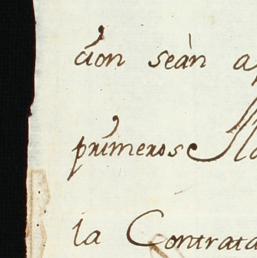 cion seàn a
primeros Il
la Contrata